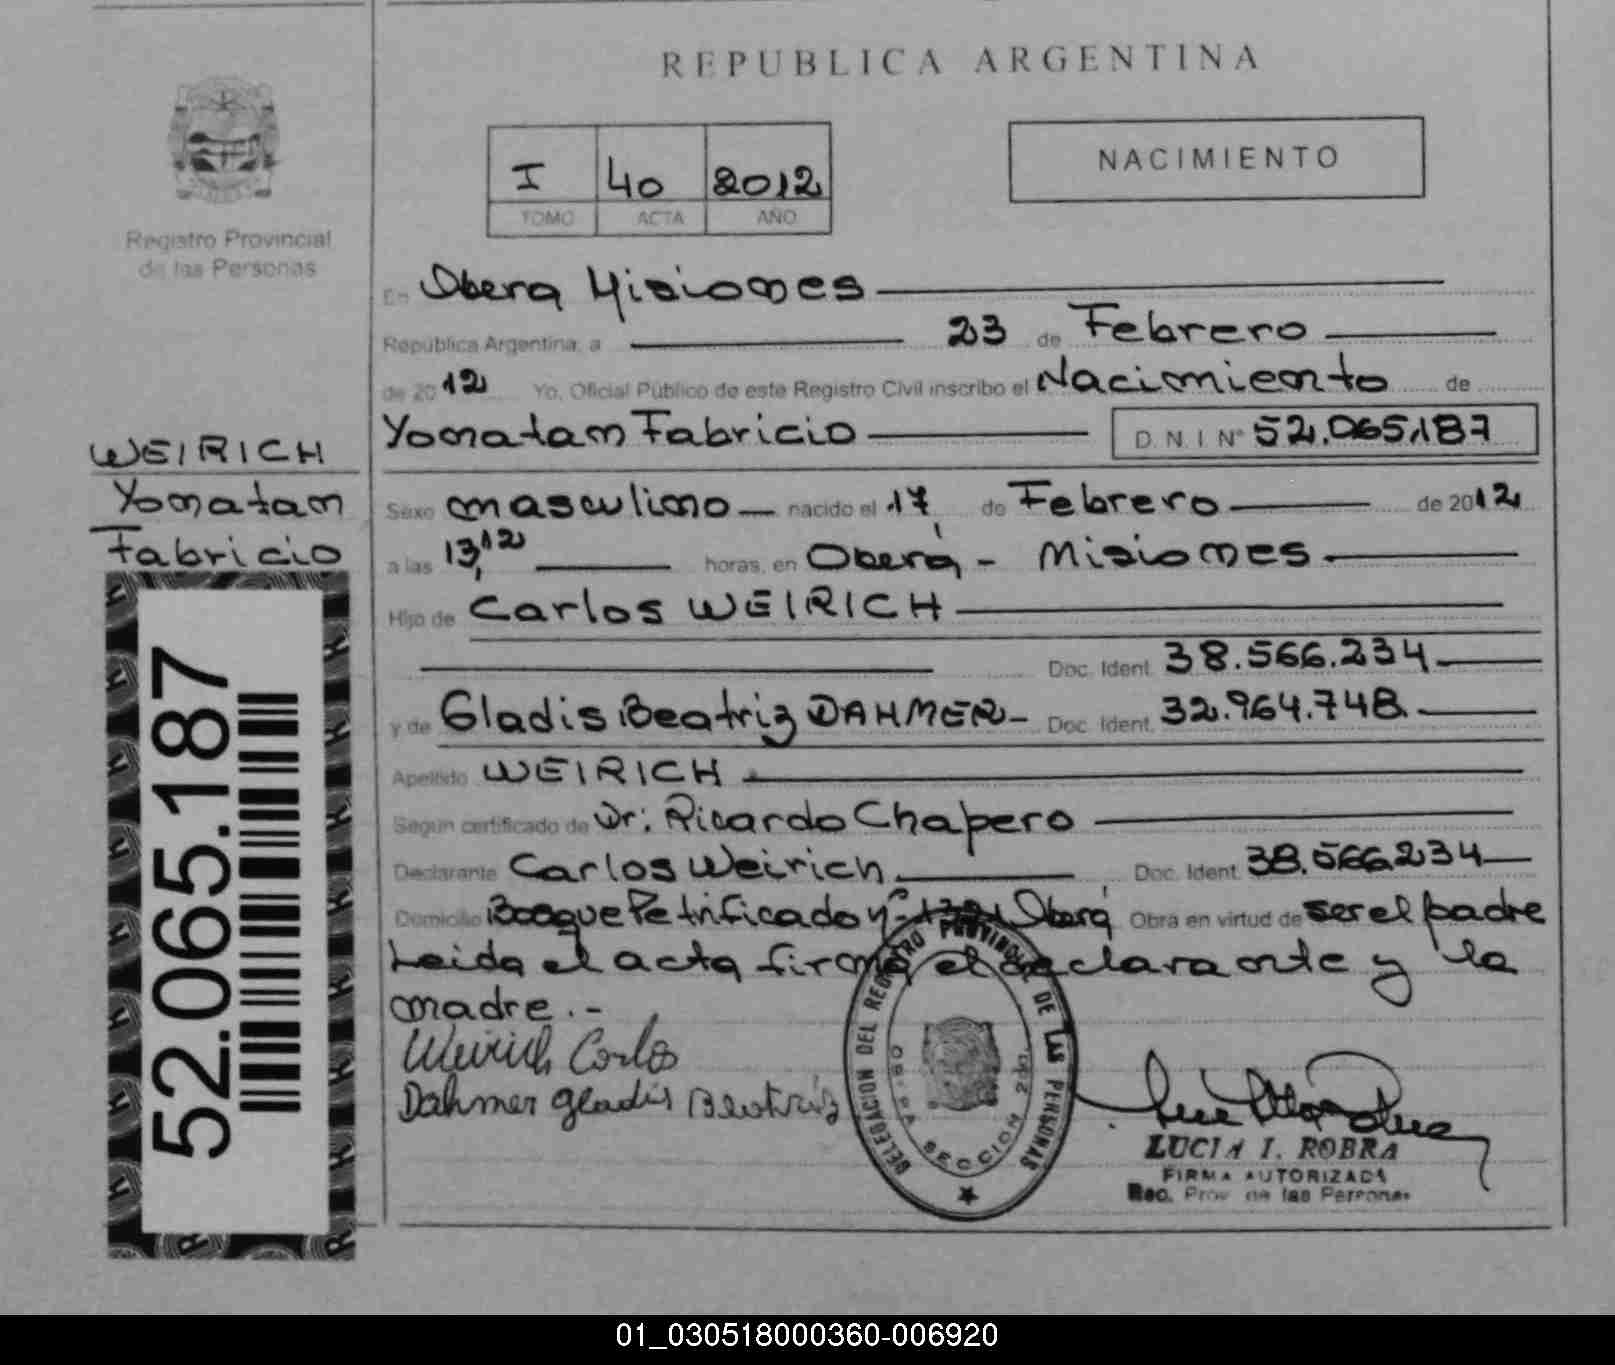 REPUBLICA ARGENTINA
I 40 2012
TOMO ACTA AÑO
NACIMIENTO
Registro Provincial
de las Personas
En Oberá Misiones
República Argentina, a 23 de Febrero
de 2012 Yo, Oficial Público de este Registro Civil inscribo el Nacimiento de
Yonatan Fabricio D.N.I Nº 52.065.187
WEIRICH
Yonatan
Fabricio
52.065.187
Sexo masculino nacido el 17 de Febrero de 2012
a las 13,12 horas, en Oberá - Misiones
Hijo de Carlos WEIRICH
Doc. Ident. 38.566.234
y de Gladis Beatriz DAHMER - Doc. Ident. 32.964.748
Apellido WEIRICH
Según certificado de Dr: Ricardo Chapero
Declarante Carlos Weirich Doc. Ident. 38.566234
Domicilio Bosque Petrificado Oberá Obra en virtud de ser el padre
Leida el acta firma el declarante y la
madre.-
Weirich Carlos
Dahmer Gladis Beatriz
DELEGACION DEL REGISTRO PROVINCIAL DE LAS PERSONAS
SECCION
LUCIA I. ROBRA
FIRMA AUTORIZADA
Reg. Prov. de las Personas
01_030518000360-006920